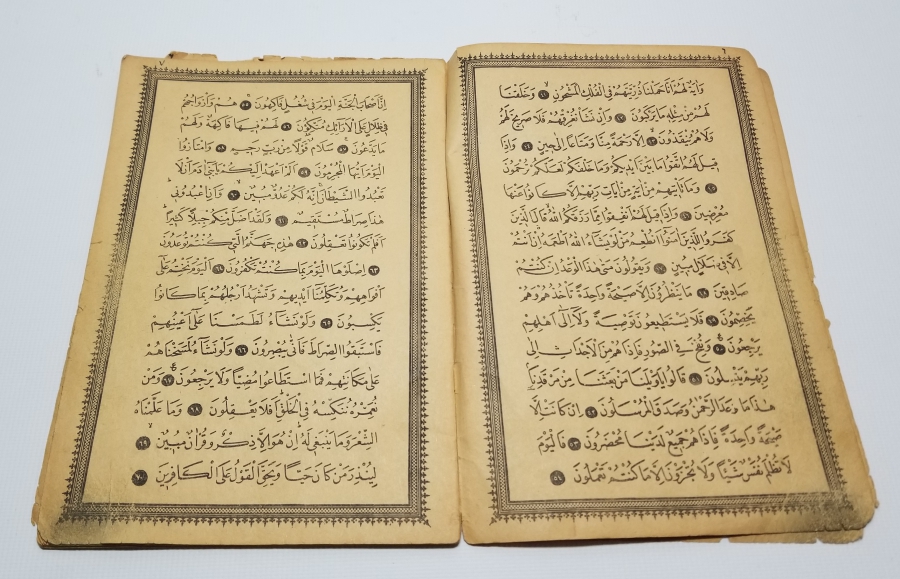 ٦
وَاٰيَةٌ لَهُمْ اَنَّا حَمَلْنَا ذُرِّيَّتَهُمْ فِى الْفُلْكِ الْمَشْحُونِ ٤١ وَخَلَقْنَا
لَهُمْ مِنْ مِثْلِهِ مَا يَرْكَبُونَ ٤٢ وَاِنْ نَشَأْ نُغْرِقْهُمْ فَلَا صَرِيخَ لَهُمْ
وَلَا هُمْ يُنْقَذُونَ ٤٣ اِلَّا رَحْمَةً مِنَّا وَمَتَاعًا اِلٰى حِينٍ ٤٤ وَاِذَا
قِيلَ لَهُمُ اتَّقُوا مَا بَيْنَ اَيْدِيكُمْ وَمَا خَلْفَكُمْ لَعَلَّكُمْ تُرْحَمُونَ
٤٥ وَمَا تَأْتِيهِمْ مِنْ اٰيَةٍ مِنْ اٰيَاتِ رَبِّهِمْ اِلَّا كَانُوا عَنْهَا
مُعْرِضِينَ ٤٦ وَاِذَا قِيلَ لَهُمْ اَنْفِقُوا مِمَّا رَزَقَكُمُ اللّٰهُ قَالَ الَّذِينَ
كَفَرُوا لِلَّذِينَ اٰمَنُوا اَنُطْعِمُ مَنْ لَوْ يَشَاءُ اللّٰهُ اَطْعَمَهُ اِنْ اَنْتُمْ
اِلَّا فِى ضَلَالٍ مُبِينٍ ٤٧ وَيَقُولُونَ مَتٰى هٰذَا الْوَعْدُ اِنْ كُنْتُمْ
صَادِقِينَ ٤٨ مَا يَنْظُرُونَ اِلَّا صَيْحَةً وَاحِدَةً تَأْخُذُهُمْ وَهُمْ
يَخِصِّمُونَ ٤٩ فَلَا يَسْتَطِيعُونَ تَوْصِيَةً وَلَا اِلٰى اَهْلِهِمْ
يَرْجِعُونَ ٥٠ وَنُفِخَ فِى الصُّورِ فَاِذَا هُمْ مِنَ الْاَجْدَاثِ اِلٰى
رَبِّهِمْ يَنْسِلُونَ ٥١ قَالُوا يَاوَيْلَنَا مَنْ بَعَثَنَا مِنْ مَرْقَدِنَا
هٰذَا مَا وَعَدَ الرَّحْمٰنُ وَصَدَقَ الْمُرْسَلُونَ ٥٢ اِنْ كَانَتْ اِلَّا
صَيْحَةً وَاحِدَةً فَاِذَا هُمْ جَمِيعٌ لَدَيْنَا مُحْضَرُونَ ٥٣ فَالْيَوْمَ
لَا تُظْلَمُ نَفْسٌ شَيْئًا وَلَا تُجْزَوْنَ اِلَّا مَا كُنْتُمْ تَعْمَلُونَ ٥٤
٧
اِنَّ اَصْحَابَ الْجَنَّةِ الْيَوْمَ فِى شُغُلٍ فَاكِهُونَ ٥٥ هُمْ وَاَزْوَاجُهُمْ
فِى ظِلَالٍ عَلَى الْاَرَائِكِ مُتَّكِؤُنَ ٥٦ لَهُمْ فِيهَا فَاكِهَةٌ وَلَهُمْ
مَا يَدَّعُونَ ٥٧ سَلَامٌ قَوْلًا مِنْ رَبٍّ رَحِيمٍ ٥٨ وَامْتَازُوا
الْيَوْمَ اَيُّهَا الْمُجْرِمُونَ ٥٩ اَلَمْ اَعْهَدْ اِلَيْكُمْ يَابَنِى اٰدَمَ اَنْ لَا
تَعْبُدُوا الشَّيْطَانَ اِنَّهُ لَكُمْ عَدُوٌّ مُبِينٌ ٦٠ وَاَنِ اعْبُدُونِى
هٰذَا صِرَاطٌ مُسْتَقِيمٌ ٦١ وَلَقَدْ اَضَلَّ مِنْكُمْ جِبِلًّا كَثِيرًا
اَفَلَمْ تَكُونُوا تَعْقِلُونَ ٦٢ هٰذِهِ جَهَنَّمُ الَّتِى كُنْتُمْ تُوعَدُونَ
٦٣ اِصْلَوْهَا الْيَوْمَ بِمَا كُنْتُمْ تَكْفُرُونَ ٦٤ اَلْيَوْمَ نَخْتِمُ عَلٰى
اَفْوَاهِهِمْ وَتُكَلِّمُنَا اَيْدِيهِمْ وَتَشْهَدُ اَرْجُلُهُمْ بِمَا كَانُوا
يَكْسِبُونَ ٦٥ وَلَوْ نَشَاءُ لَطَمَسْنَا عَلٰى اَعْيُنِهِمْ
فَاسْتَبَقُوا الصِّرَاطَ فَاَنّٰى يُبْصِرُونَ ٦٦ وَلَوْ نَشَاءُ لَمَسَخْنَاهُمْ
عَلٰى مَكَانَتِهِمْ فَمَا اسْتَطَاعُوا مُضِيًّا وَلَا يَرْجِعُونَ ٦٧ وَمَنْ
نُعَمِّرْهُ نُنَكِّسْهُ فِى الْخَلْقِ اَفَلَا يَعْقِلُونَ ٦٨ وَمَا عَلَّمْنَاهُ
الشِّعْرَ وَمَا يَنْبَغِى لَهُ اِنْ هُوَ اِلَّا ذِكْرٌ وَقُرْاٰنٌ مُبِينٌ ٦٩
لِيُنْذِرَ مَنْ كَانَ حَيًّا وَيَحِقَّ الْقَوْلُ عَلَى الْكَافِرِينَ ٧٠